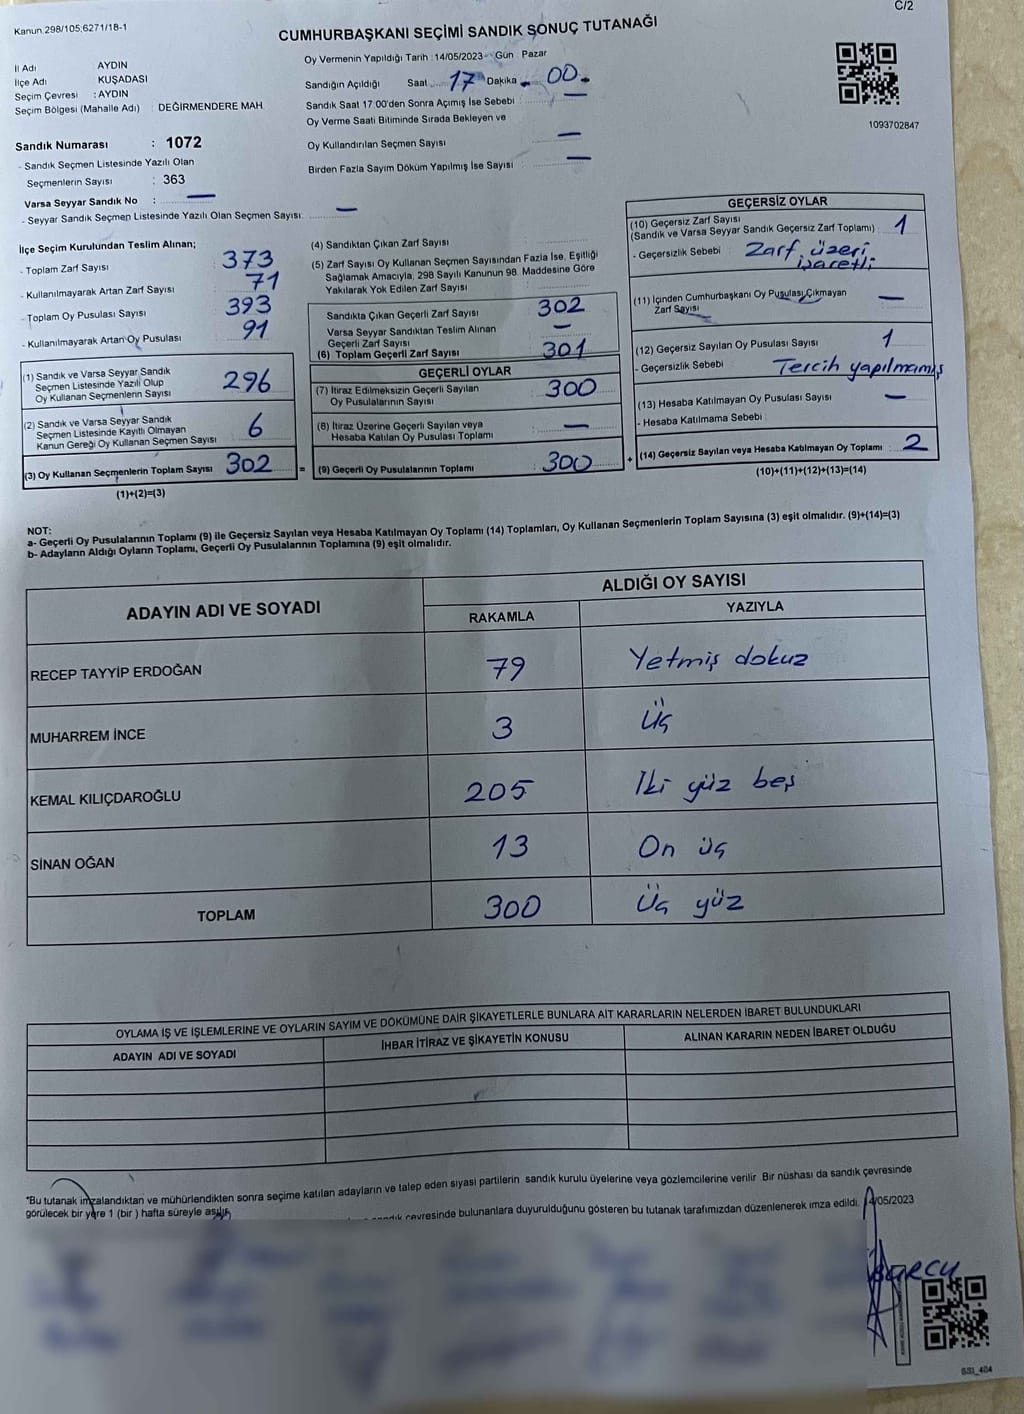 C/2
Kanun.298/105;6271/18-1
CUMHURBAŞKANI SEÇİMİ SANDIK SONUÇ TUTANAĞI
İl Adı AYDIN
İlçe Adı KUŞADASI
Seçim Çevresi : AYDIN
Seçim Bölgesi (Mahalle Adı) : DEĞİRMENDERE MAH
Oy Vermenin Yapıldığı Tarih : 14/05/2023 - Gün : Pazar
Sandığın Açıldığı Saat 17 Dakika 00
Sandık Saat 17:00'den Sonra Açımış İse Sebebi :
Oy Verme Saati Bitiminde Sırada Bekleyen ve
Oy Kullandırılan Seçmen Sayısı —
Birden Fazla Sayım Döküm Yapılmış İse Sayısı : —
1093702847
Sandık Numarası : 1072
- Sandık Seçmen Listesinde Yazılı Olan
Seçmenlerin Sayısı : 363
Varsa Seyyar Sandık No : —
- Seyyar Sandık Seçmen Listesinde Yazılı Olan Seçmen Sayısı: —
İlçe Seçim Kurulundan Teslim Alınan;
- Toplam Zarf Sayısı 373
- Kullanılmayarak Artan Zarf Sayısı 71
- Toplam Oy Pusulası Sayısı 393
- Kullanılmayarak Artan Oy Pusulası 91
(1) Sandık ve Varsa Seyyar Sandık
Seçmen Listesinde Yazılı Olup
Oy Kullanan Seçmenlerin Sayısı 296
(2) Sandık ve Varsa Seyyar Sandık
Seçmen Listesinde Kayıtlı Olmayan
Kanun Gereği Oy Kullanan Seçmen Sayısı 6
(3) Oy Kullanan Seçmenlerin Toplam Sayısı 302
(1)+(2)=(3)
(4) Sandıktan Çıkan Zarf Sayısı
(5) Zarf Sayısı Oy Kullanan Seçmen Sayısından Fazla İse, Eşitliği
Sağlamak Amacıyla, 298 Sayılı Kanunun 98. Maddesine Göre
Yakılarak Yok Edilen Zarf Sayısı
Sandıkta Çıkan Geçerli Zarf Sayısı 302
Varsa Seyyar Sandıktan Teslim Alınan
Geçerli Zarf Sayısı —
(6) Toplam Geçerli Zarf Sayısı 301
GEÇERLİ OYLAR
(7) İtiraz Edilmeksizin Geçerli Sayılan
Oy Pusulalarının Sayısı : 300
(8) İtiraz Üzerine Geçerli Sayılan veya
Hesaba Katılan Oy Pusulası Toplamı : —
= (9) Geçerli Oy Pusulalarının Toplamı : 300
GEÇERSİZ OYLAR
(10) Geçersiz Zarf Sayısı
(Sandık ve Varsa Seyyar Sandık Geçersiz Zarf Toplamı) : 1
- Geçersizlik Sebebi : Zarf üzeri
işaretli
(11) İçinden Cumhurbaşkanı Oy Pusulası Çıkmayan
Zarf Sayısı —
(12) Geçersiz Sayılan Oy Pusulası Sayısı 1
- Geçersizlik Sebebi : Tercih yapılmamış
(13) Hesaba Katılmayan Oy Pusulası Sayısı —
- Hesaba Katılmama Sebebi :
+ (14) Geçersiz Sayılan veya Hesaba Katılmayan Oy Toplamı : 2
(10)+(11)+(12)+(13)=(14)
NOT:
a- Geçerli Oy Pusulalarının Toplamı (9) ile Geçersiz Sayılan veya Hesaba Katılmayan Oy Toplamı (14) Toplamları, Oy Kullanan Seçmenlerin Toplam Sayısına (3) eşit olmalıdır. (9)+(14)=(3)
b- Adayların Aldığı Oyların Toplamı, Geçerli Oy Pusulalarının Toplamına (9) eşit olmalıdır.
ADAYIN ADI VE SOYADI ALDIĞI OY SAYISI
RAKAMLA YAZIYLA
RECEP TAYYİP ERDOĞAN 79 Yetmiş dokuz
MUHARREM İNCE 3 Üç
KEMAL KILIÇDAROĞLU 205 İki yüz beş
SİNAN OĞAN 13 On üç
TOPLAM 300 Üç yüz
OYLAMA İŞ VE İŞLEMLERİNE VE OYLARIN SAYIM VE DÖKÜMÜNE DAİR ŞİKAYETLERLE BUNLARA AİT KARARLARIN NELERDEN İBARET BULUNDUKLARI
ADAYIN ADI VE SOYADI İHBAR İTİRAZ VE ŞİKAYETİN KONUSU ALINAN KARARIN NEDEN İBARET OLDUĞU
*Bu tutanak imzalandıktan ve mühürlendikten sonra seçime katılan adayların ve talep eden siyasi partilerin sandık kurulu üyelerine veya gözlemcilerine verilir. Bir nüshası da sandık çevresinde
görülecek bir yere 1 (bir) hafta süreyle asılır. çevresinde bulunanlara duyurulduğunu gösteren bu tutanak tarafımızdan düzenlenerek imza edildi. 14/05/2023
BURCU
SS1_404